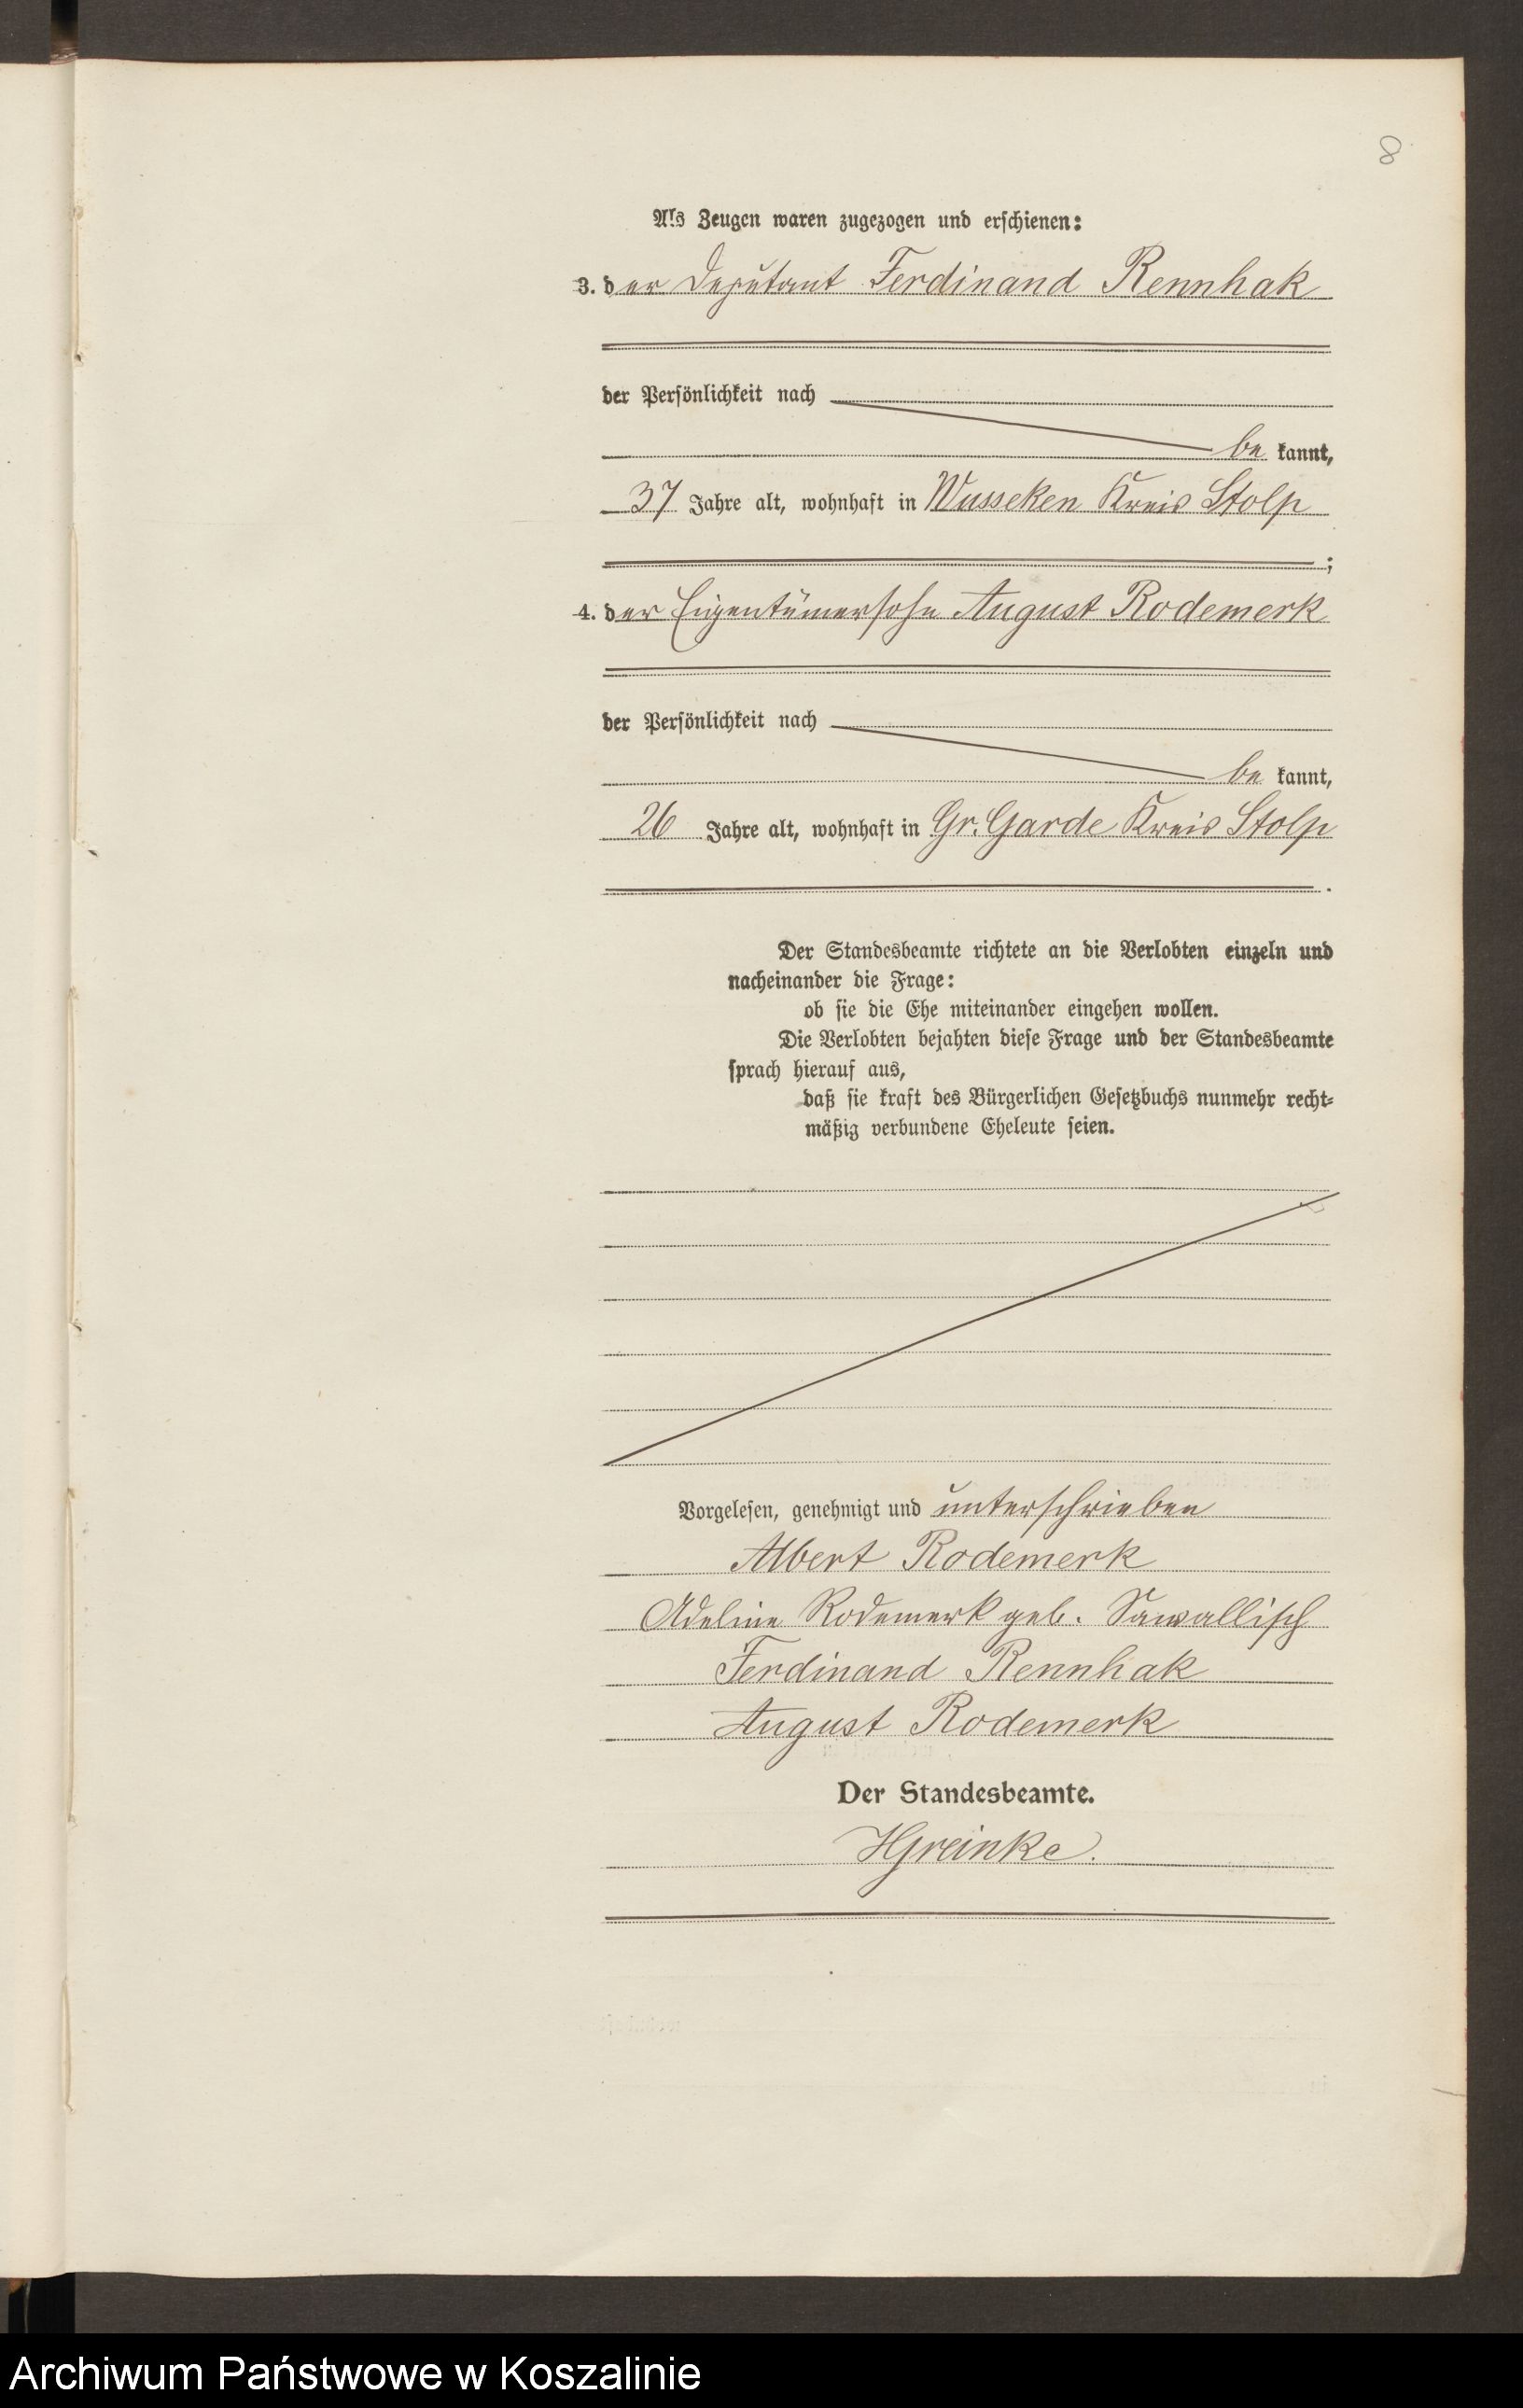 8
Als Zeugen waren zugezogen und erschienen:
3. der Deputant Ferdinand Rennhak
der Persönlichkeit nach
be kannt,
37 Jahre alt, wohnhaft in Wusseken Kreis Stolp
;
4. der Eigentümersohn August Rodemerk
der Persönlichkeit nach
be kannt,
26 Jahre alt, wohnhaft in Gr. Garde Kreis Stolp
.
Der Standesbeamte richtete an die Verlobten einzeln und
nacheinander die Frage:
ob sie die Ehe miteinander eingehen wollen.
Die Verlobten bejahten diese Frage und der Standesbeamte
sprach hierauf aus,
daß sie kraft des Bürgerlichen Gesetzbuchs nunmehr recht-
mäßig verbundene Eheleute seien.
Vorgelesen, genehmigt und unterschrieben
Albert Rodemerk
Adeline Rodemerk geb. Sawallisch
Ferdinand Rennhak
August Rodemerk
Der Standesbeamte.
HGreinke.
Archiwum Państwowe w Koszalinie